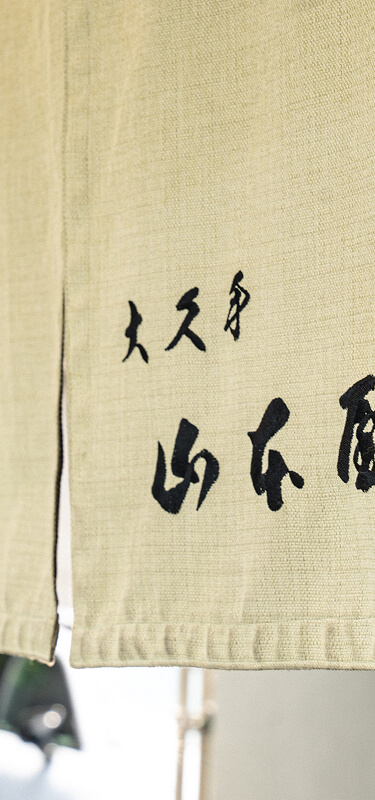 大久手
山本屋